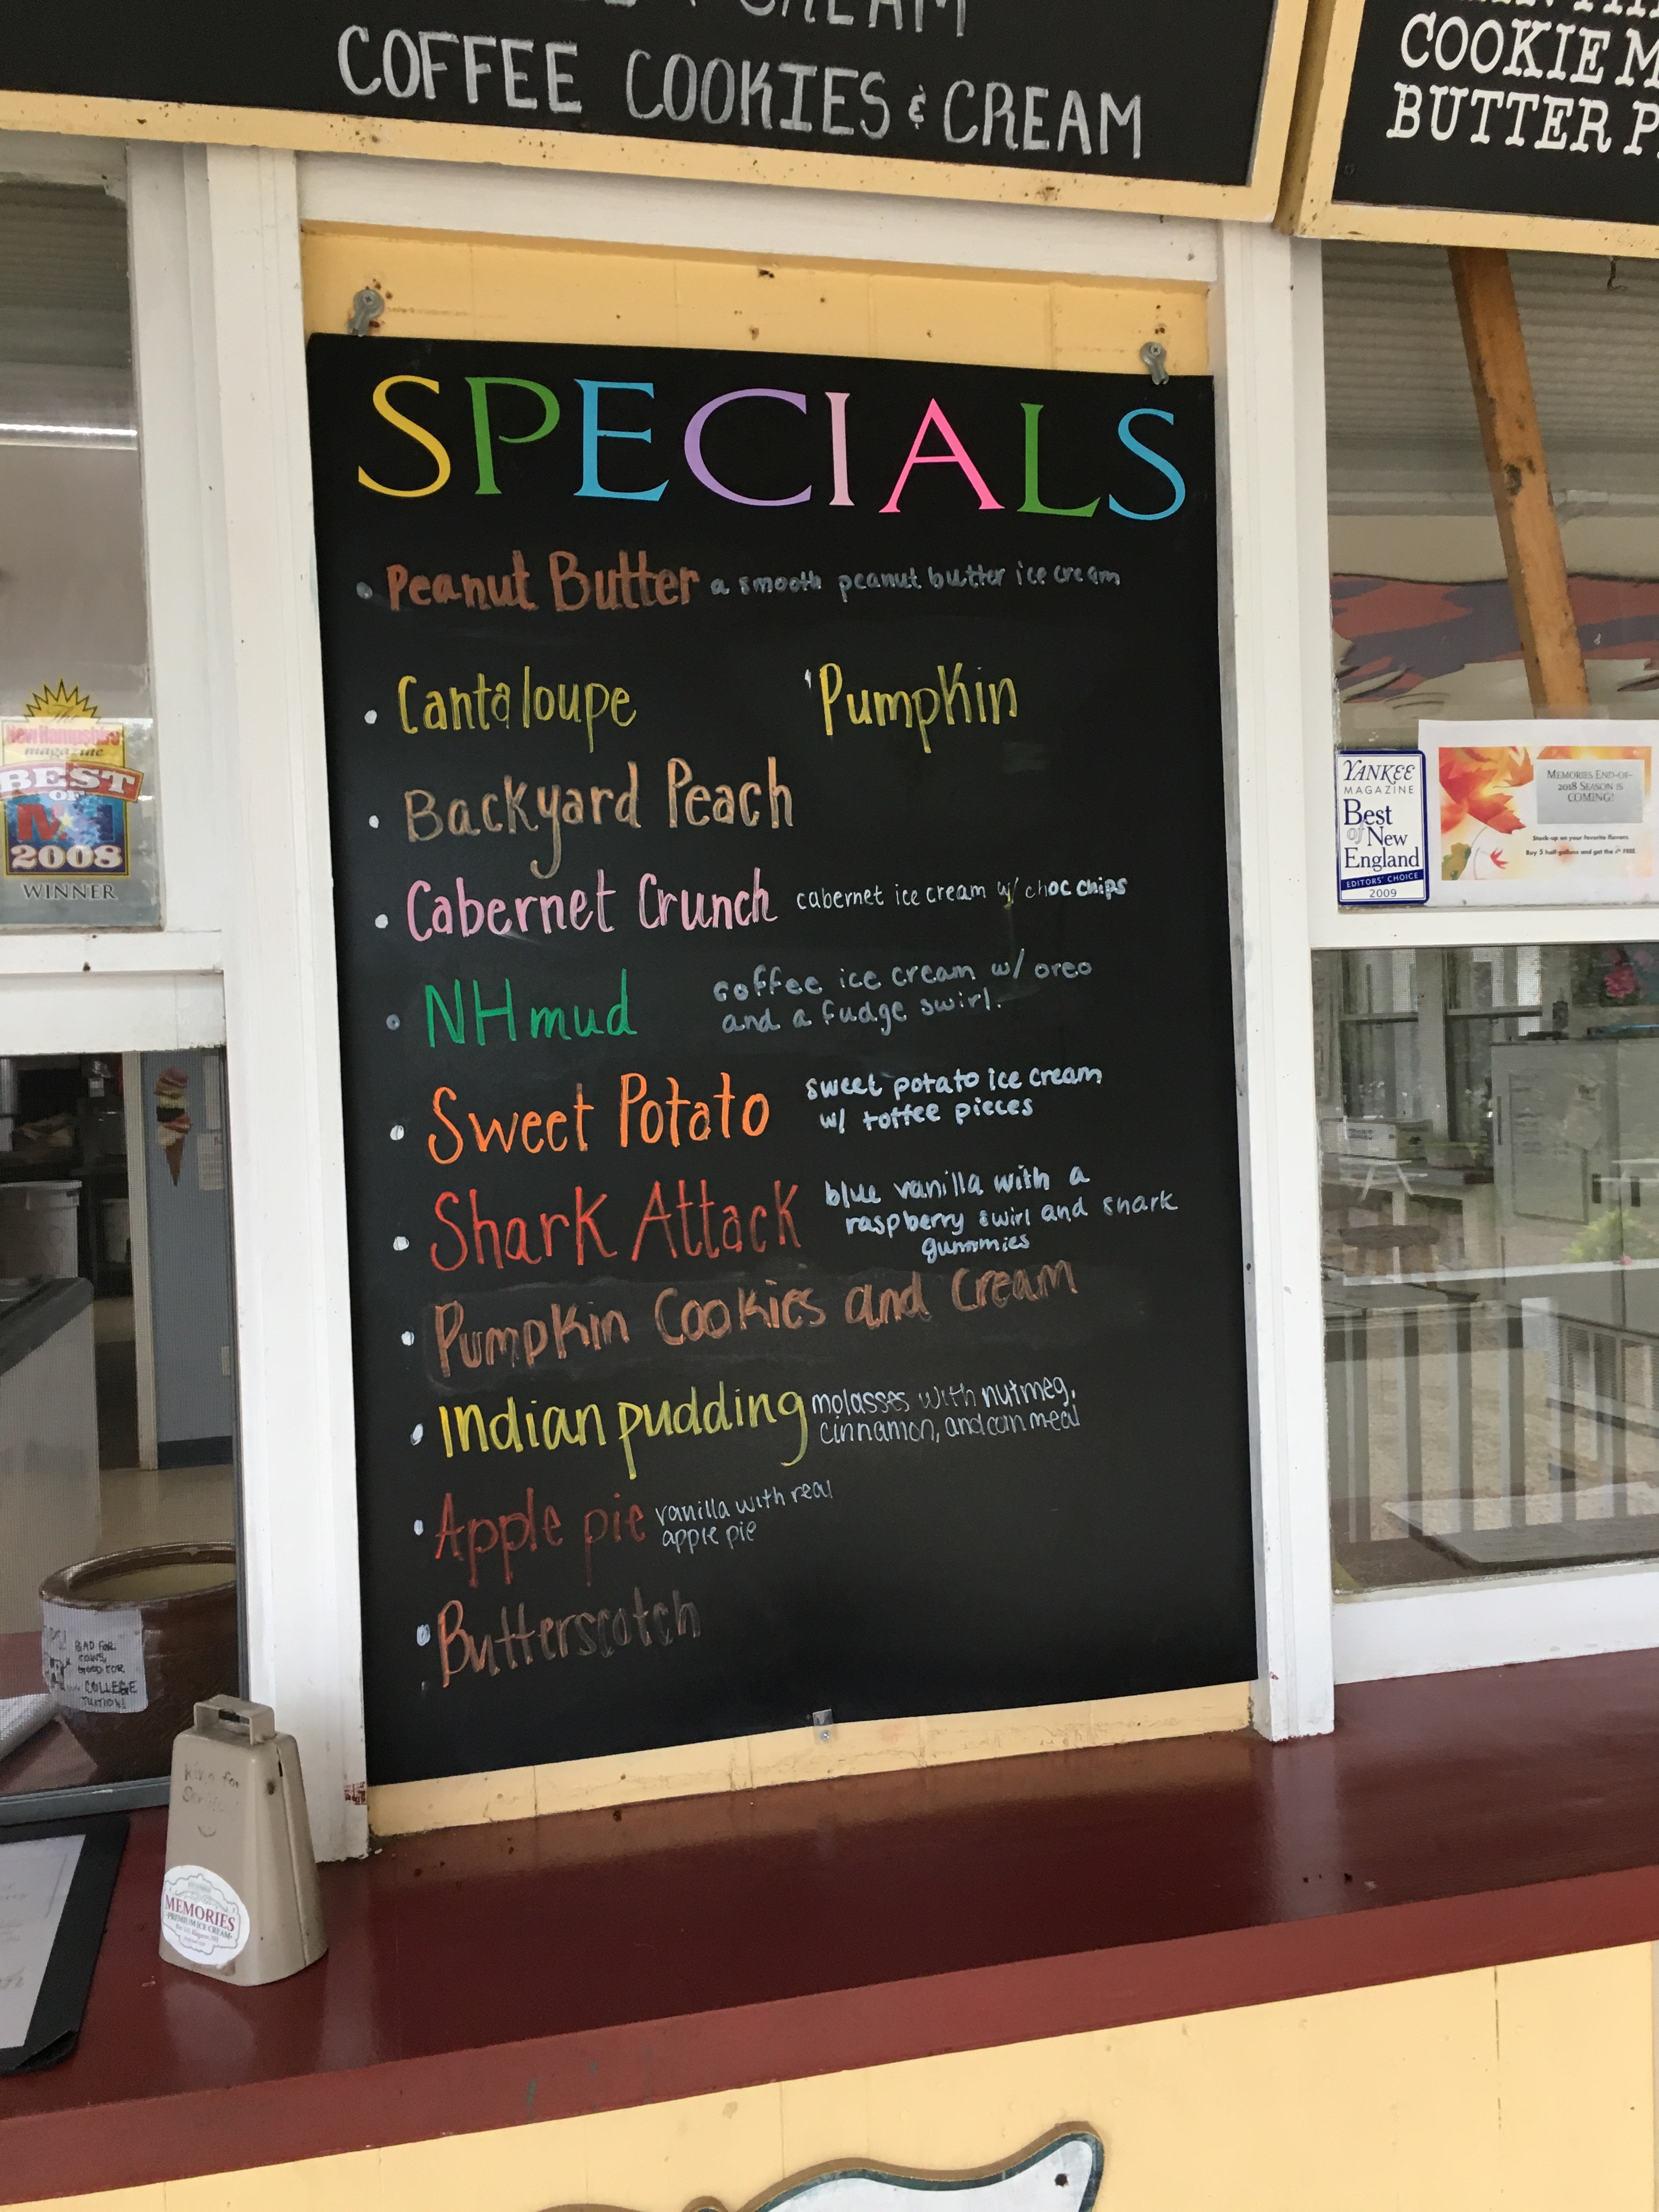 CREAM
COFFEE COOKIES & CREAM
COOKIE
BUTTER
SPECIALS
• Peanut Butter a smooth peanut butter ice cream
• Cantaloupe 'Pumpkin
• Backyard Peach
• Cabernet Crunch cabernet ice cream w/ choc chips
• NH mud coffee ice cream w/ oreo
and a fudge swirl.
• Sweet Potato sweet potato ice cream
w/ toffee pieces
• Shark Attack blue vanilla with a
raspberry swirl and shark
gummies
• Pumpkin Cookies and Cream
• Indian pudding molasses with nutmeg,
cinnamon, and corn meal
• Apple pie vanilla with real
apple pie
• Butterscotch
The
New Hampshire
magazine
BEST
OF
NH
2008
WINNER
YANKEE
MAGAZINE
Best
of New
England
EDITORS' CHOICE
2009
MEMORIES END-OF-
2018 SEASON IS
COMING!
Stock-up on your favorite flavors
Buy 5 half-gallons and get the 6th FREE
BAD FOR
COWS,
GOOD FOR
COLLEGE
TUITION!
Ring for
MEMORIES
PREMIUM ICE CREAM